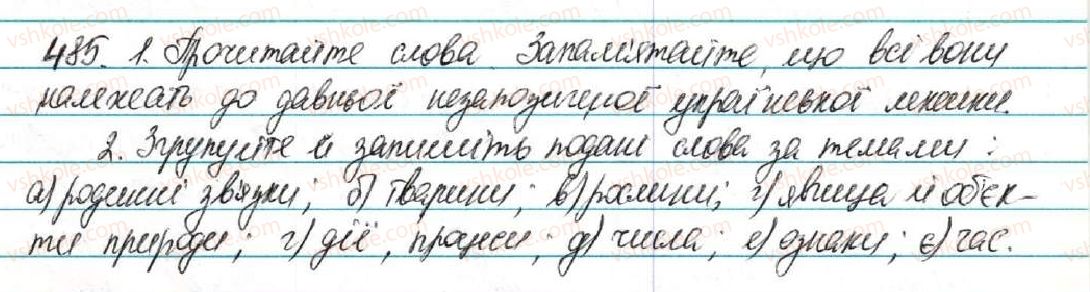 485. 1. Прочитайте слова. Запам'ятайте, що всі вони
належать до давньої незапозиченої української лексики.
2. Згрупуйте й запишіть подані слова за темами:
а) родинні зв'язки; б) тварини; в) рослини; г) явища й об'єк-
ти природи; ґ) дії, процеси; д) числа; е) ознаки; є) час.